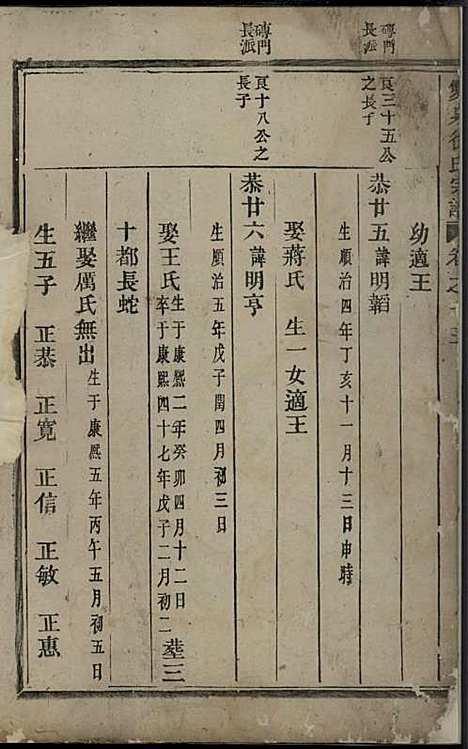 徐氏宗譜 卷之十三
幼適王
磚門長派
良三十五公之長子
恭廿五 諱明韜
生順治四年丁亥十一月十三日申時
娶蔣氏 生一女適王
磚門長派
良十八公之長子
恭廿六 諱明亨
生順治五年戊子閏四月初三日
娶王氏 生于康熙二年癸卯四月十二日
卒于康熙四十七年戊子二月初二 塟三
十都長蛇
繼娶厲氏無出 生于康熙五年丙午五月初五日
生五子 正恭 正寬 正信 正敏 正惠